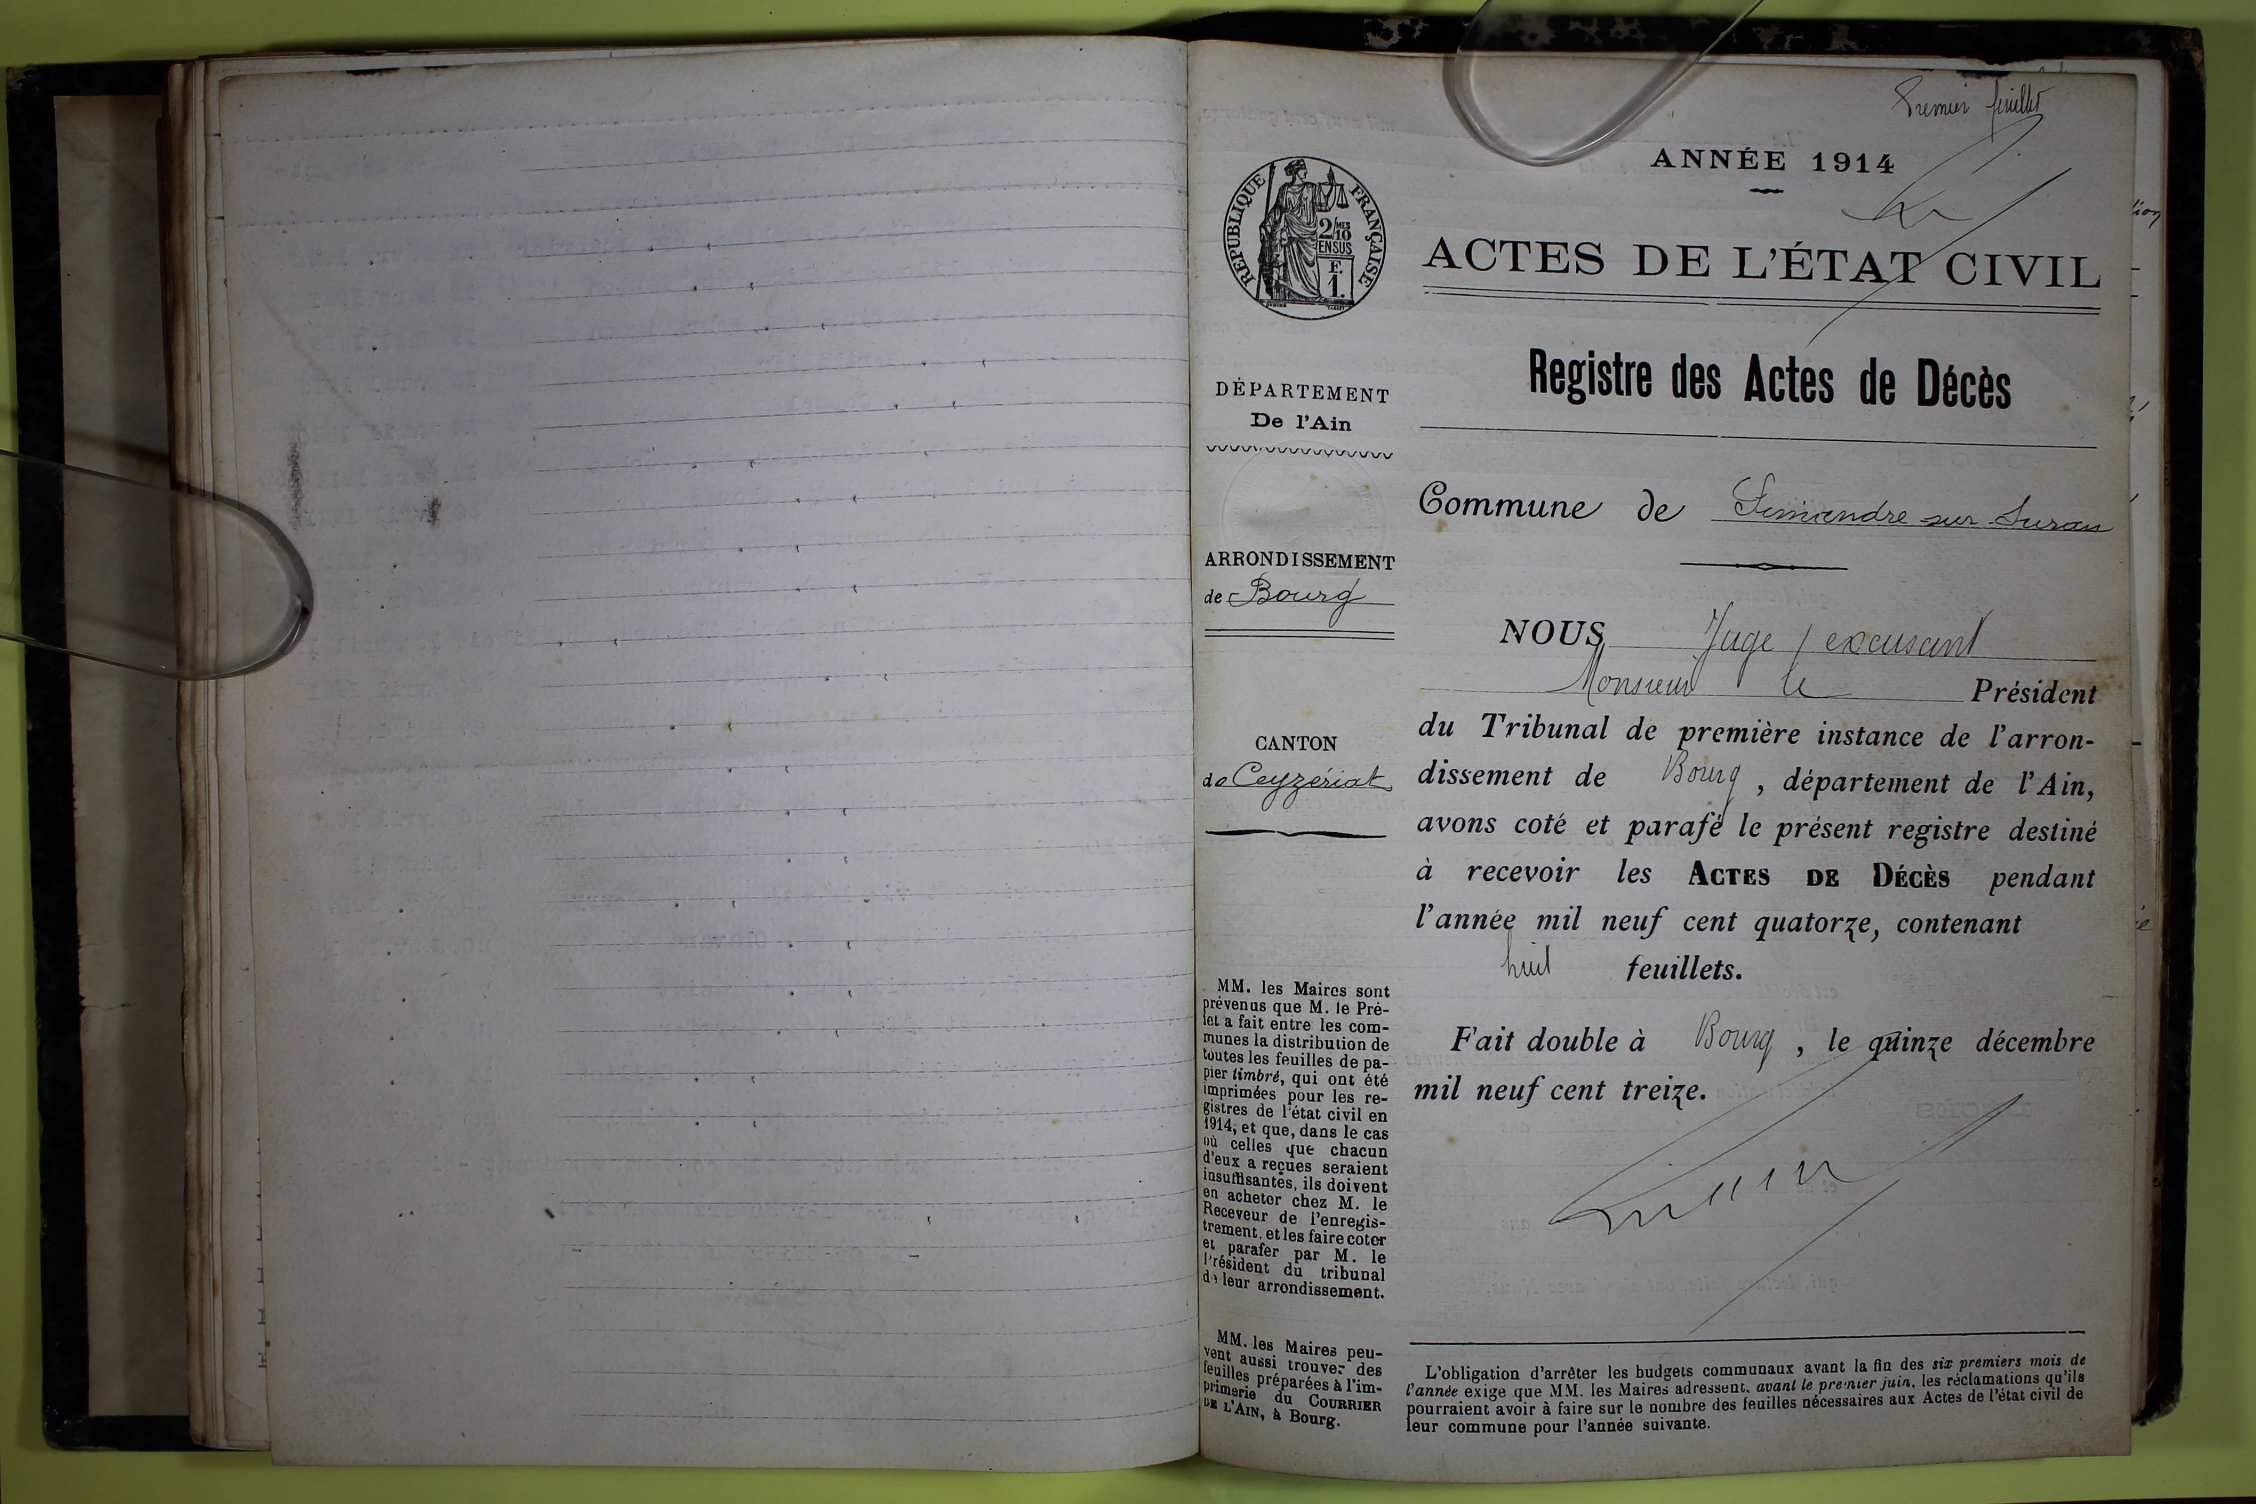 Premier feuillet
ANNÉE 1914
RÉPUBLIQUE FRANÇAISE
2/10 MES
EN SUS
F.
1.
ACTES DE L'ÉTAT CIVIL
Registre des Actes de Décès
DÉPARTEMENT
De l'Ain
Commune de Simandre sur Suran
ARRONDISSEMENT
de Bourg
NOUS Juge excusant
Monsieur le Président
du Tribunal de première instance de l'arron-
dissement de Bourg, département de l'Ain,
avons coté et parafé le présent registre destiné
à recevoir les ACTES DE DÉCÈS pendant
l'année mil neuf cent quatorze, contenant
huit feuillets.
Fait double à Bourg, le quinze décembre
mil neuf cent treize.
CANTON
de Ceyzériat
MM. les Maires sont
prévenus que M. le Pré-
fet a fait entre les com-
munes la distribution de
toutes les feuilles de pa-
pier timbré, qui ont été
imprimées pour les re-
gistres de l'état civil en
1914, et que, dans le cas
où celles que chacun
d'eux a reçues seraient
insuffisantes, ils doivent
en acheter chez M. le
Receveur de l'enregis-
trement, et les faire coter
et parafer par M. le
Président du tribunal
de leur arrondissement.
MM. les Maires peu-
vent aussi trouver des
feuilles préparées à l'im-
primerie du COURRIER
DE L'AIN, à Bourg.
L'obligation d'arrêter les budgets communaux avant la fin des six premiers mois de
l'année exige que MM. les Maires adressent, avant le premier juin, les réclamations qu'ils
pourraient avoir à faire sur le nombre des feuilles nécessaires aux Actes de l'état civil de
leur commune pour l'année suivante.